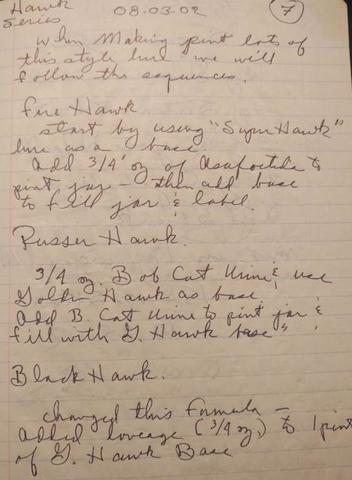 Hawk 08-03-02 7
Series
When Making pint lots of
this style lure we will
follow the sequences.
Fire Hawk
start by using "Super Hawk"
lure as a base
Add 3/4 oz of Asafoetida to
pint jar - then add base
to fill jar & label.
Russer Hawk.
3/4 oz. Bob Cat Urine & use
Golden Hawk as base.
Add B. Cat Urine to pint jar &
fill with G. Hawk base"
Black Hawk.
changed this Formula -
Added loveage (3/4 oz,) to 1 pint
of G. Hawk Base